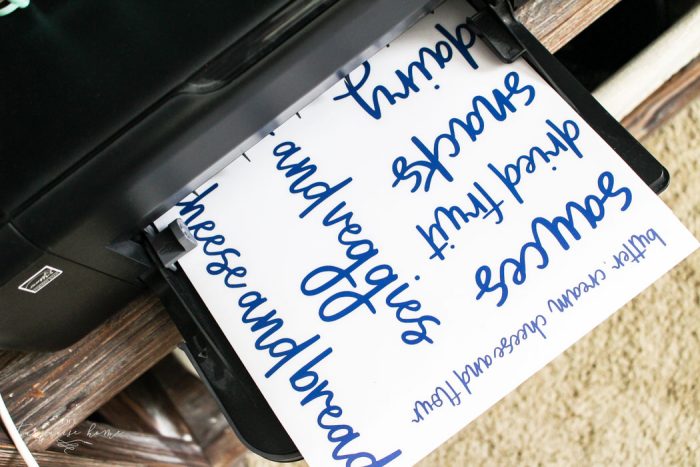 dairy
snacks
dried fruit
sauces
butter, cream cheese and flour
and veggies
heese and bread
home